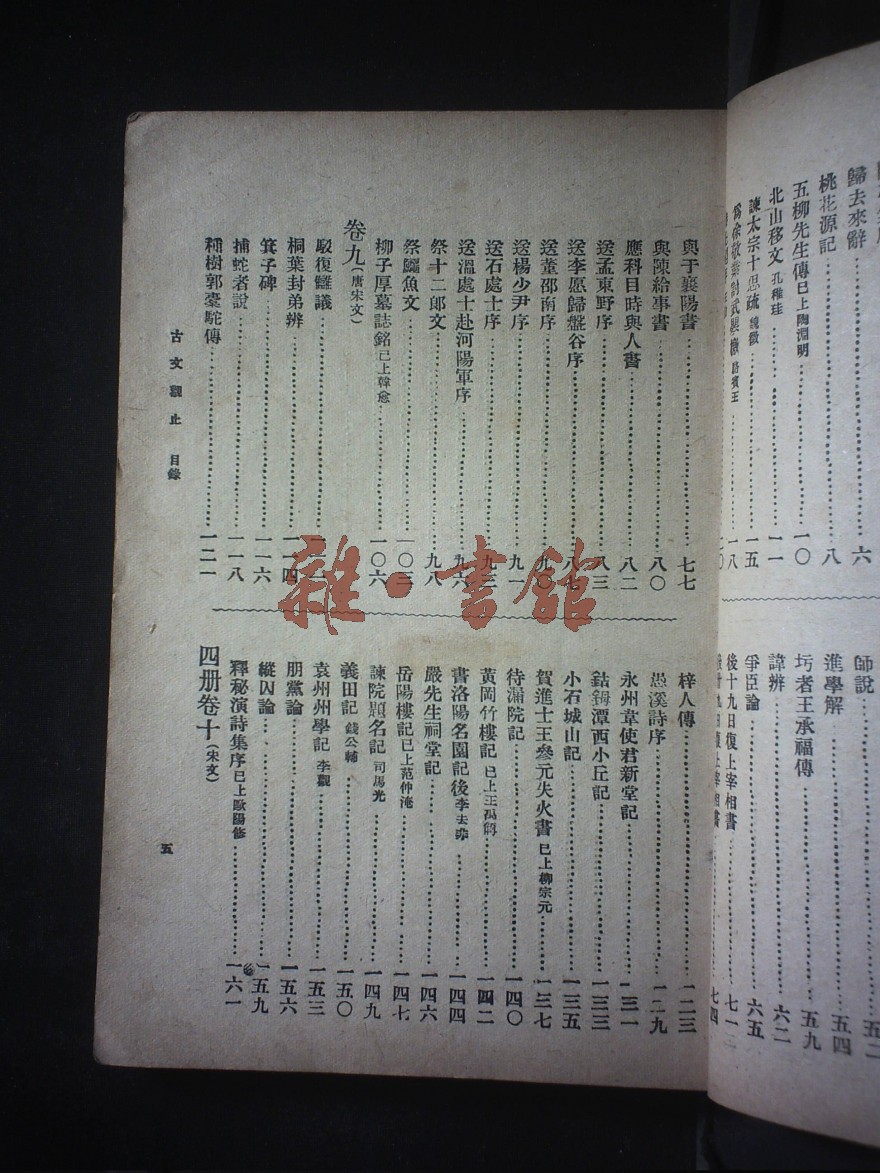 歸去來辭 六
桃花源記 八
五柳先生傳 已上陶淵明 一〇
北山移文 孔稚珪 一一
諫太宗十思疏 魏徵 一五
爲徐敬業討武曌檄 駱賓王 一八
二〇
師說 五二
進學解 五四
圬者王承福傳 五九
諱辨 六二
爭臣論 六五
後十九日復上宰相書 七一
後廿九日復上宰相書 七四
與于襄陽書 七七
與陳給事書 八〇
應科目時與人書 八二
送孟東野序 八三
送李愿歸盤谷序 八七
送董邵南序 九〇
送楊少尹序 九一
送石處士序 九三
送溫處士赴河陽軍序 九六
祭十二郎文 九八
祭鱷魚文 一〇三
柳子厚墓誌銘 已上韓愈 一〇六
卷九（唐宋文）
駁復讎議
桐葉封弟辨 一一四
箕子碑 一一六
捕蛇者說 一一八
種樹郭橐駝傳 一二一
梓人傳 一二三
愚溪詩序 一二九
永州韋使君新堂記 一三一
鈷鉧潭西小丘記 一三三
小石城山記 一三五
賀進士王參元失火書 已上柳宗元 一三七
待漏院記 一四〇
黃岡竹樓記 已上王禹偁 一四二
書洛陽名園記後 李去非 一四四
嚴先生祠堂記 一四六
岳陽樓記 已上范仲淹 一四七
諫院題名記 司馬光 一四九
義田記 錢公輔 一五〇
袁州州學記 李覯 一五三
朋黨論 一五六
縱囚論 一五九
釋秘演詩集序 已上歐陽修 一六一
四册卷十（宋文）
古文觀止 目錄
五
雜·書館